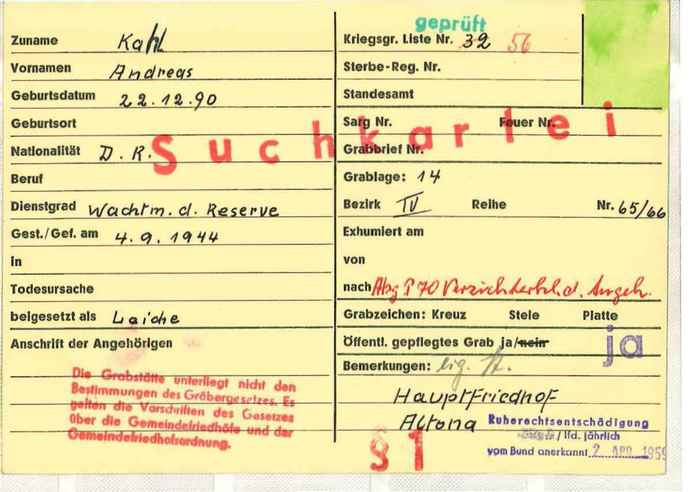 geprüft
Zuname Kahl
Vornamen Andreas
Geburtsdatum 22.12.90
Geburtsort
Nationalität D. R.
Beruf
Dienstgrad Wachtm. d. Reserve
Gest./Gef. am 4.9.1944
in
Todesursache
beigesetzt als Laiche
Anschrift der Angehörigen
Die Grabstätte unterliegt nicht den
Bestimmungen des Gräbergesetzes. Es
gelten die Vorschriften des Gesetzes
über die Gemeindefriedhöfe und der
Gemeindefriedhofsordnung.
Suchkartei
Kriegsgr. Liste Nr. 32 56
Sterbe-Reg. Nr.
Standesamt
Sarg Nr. Feuer Nr.
Grabbrief Nr.
Grablage: 14
Bezirk IV Reihe Nr. 65/66
Exhumiert am
von
nach Abg § 70 d. Angeh.
Grabzeichen: Kreuz Stele Platte
Öffentl. gepflegtes Grab ja/nein ja
Bemerkungen: eig.
Hauptfriedhof
Altona
Ruherechtsentschädigung
/ lfd. jährlich
vom Bund anerkannt 2. APR. 1959
§ 1